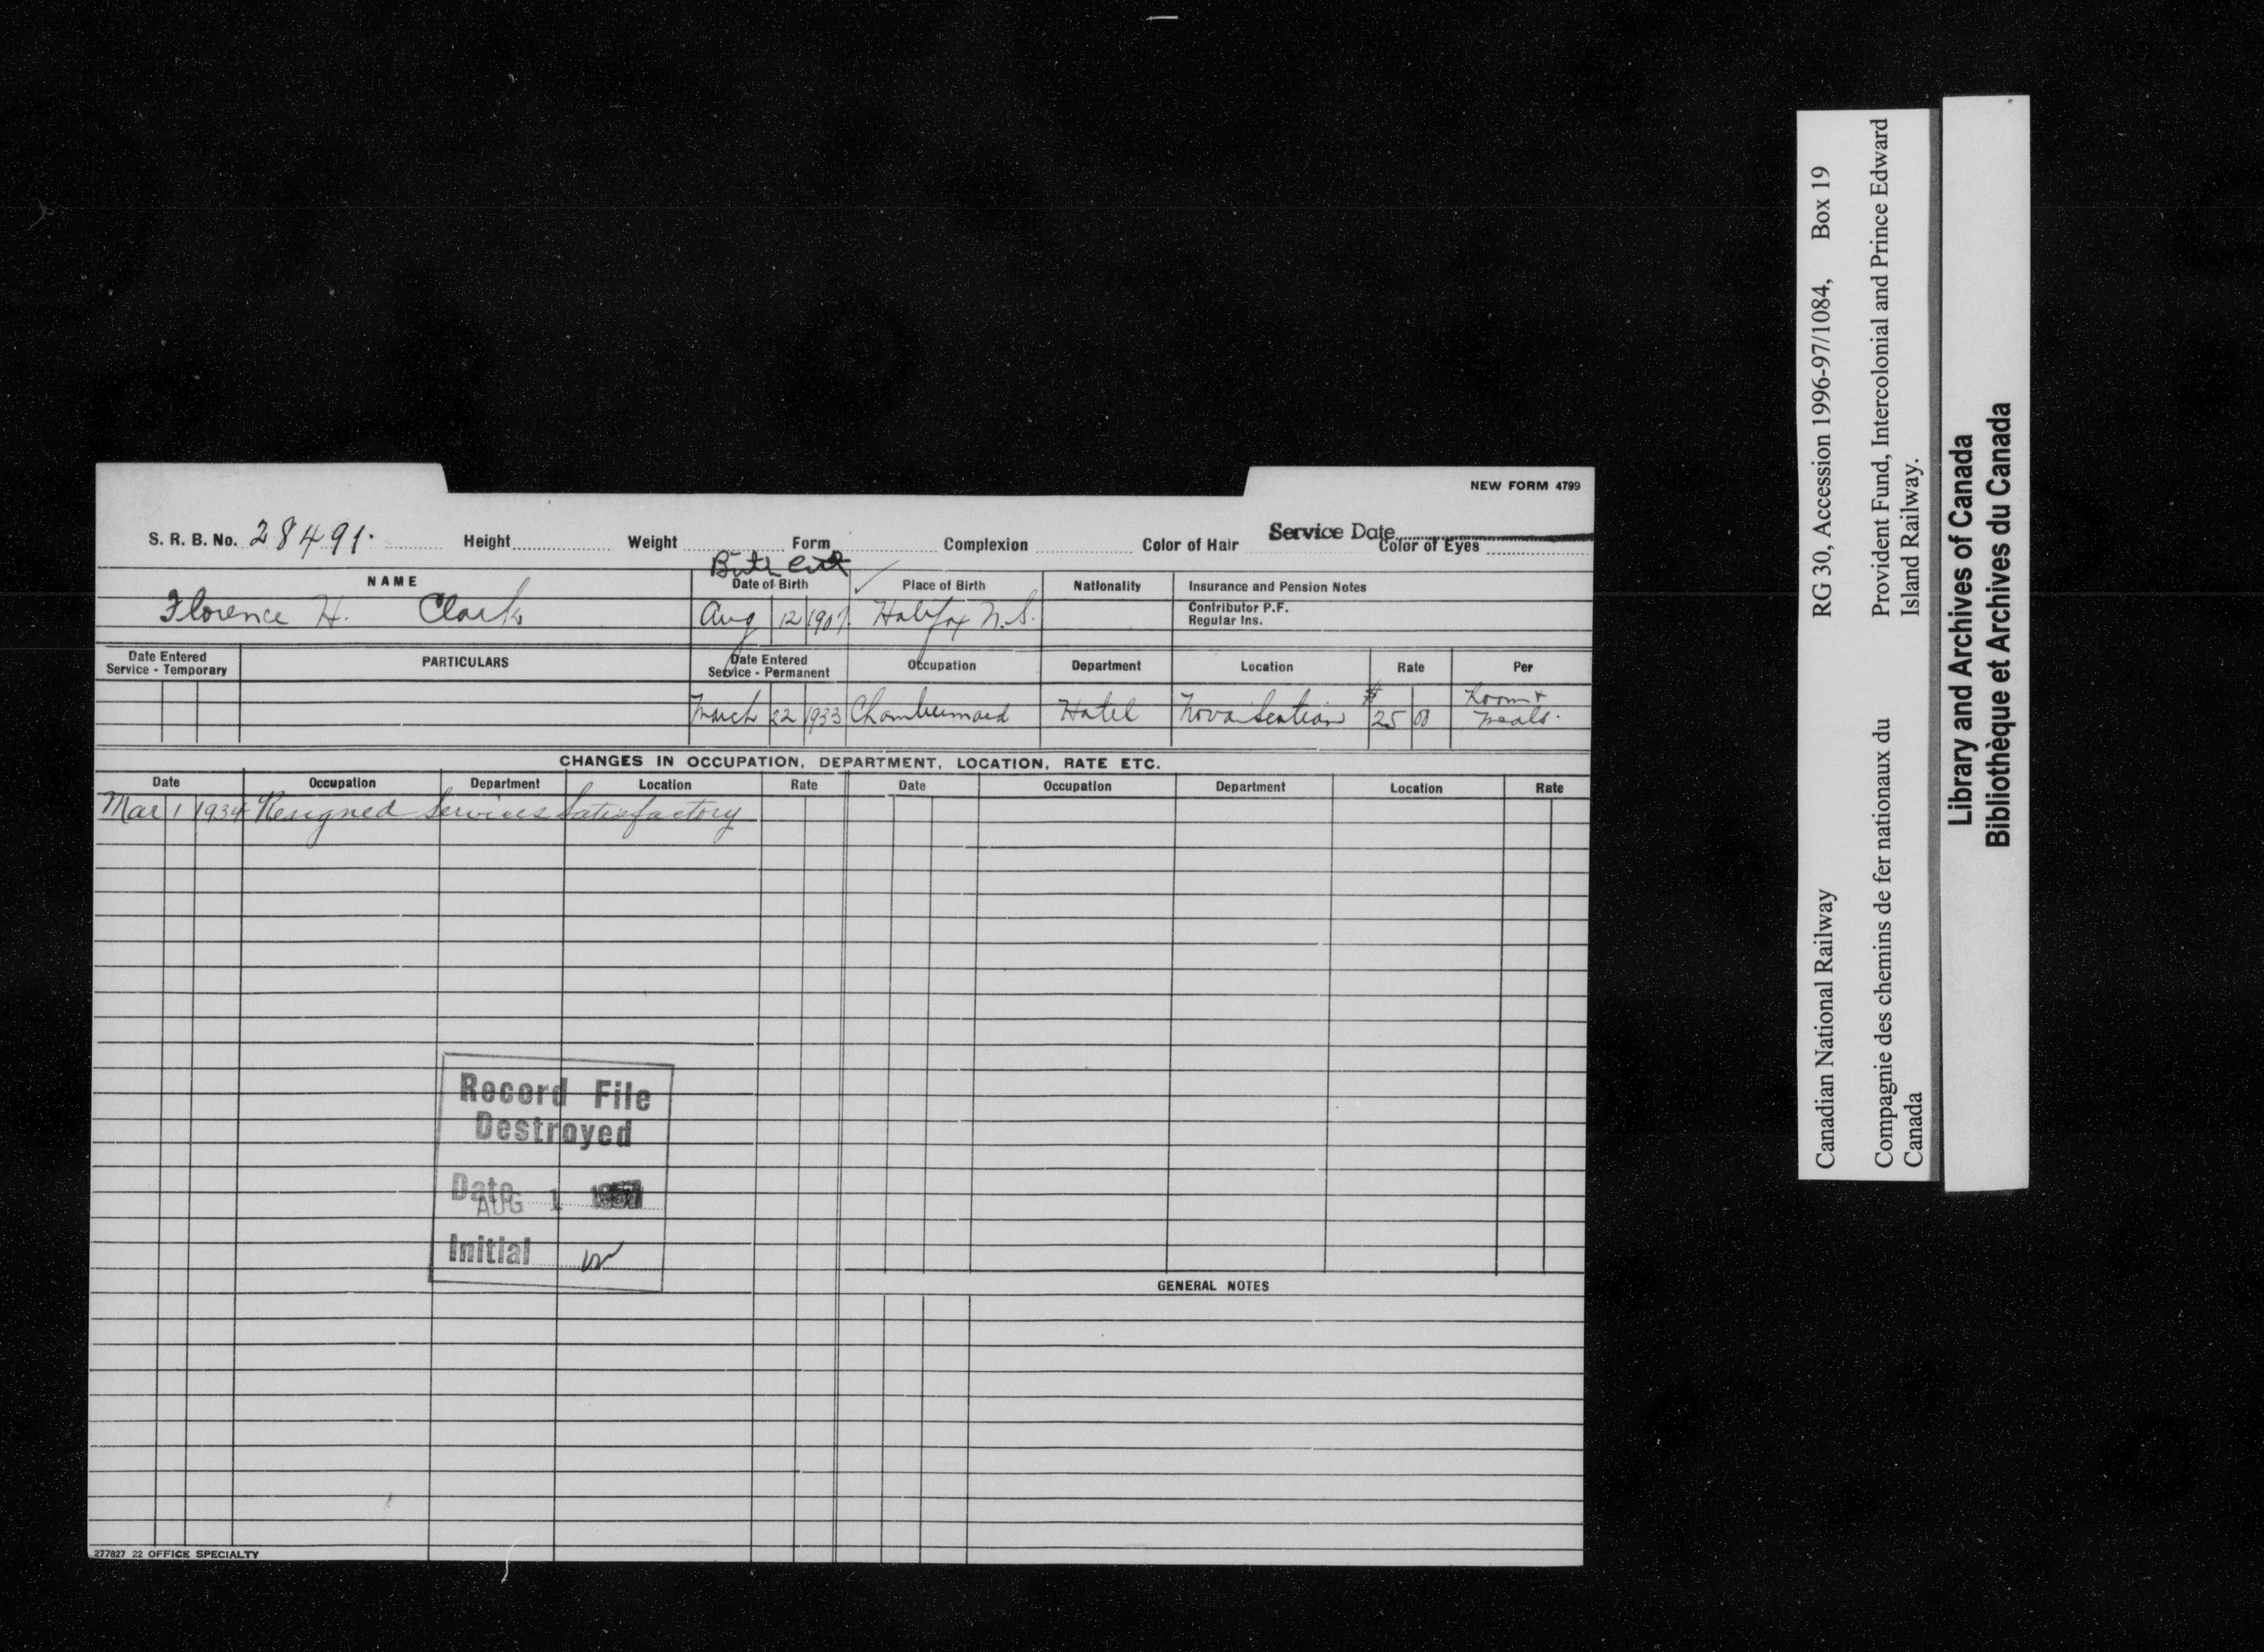 NEW FORM 4799
S. R. B. No. 28491. Height Weight Form Complexion Color of Hair Service Date Color of Eyes
Birth Cert
NAME Date of Birth Place of Birth Nationality Insurance and Pension Notes
Florence H. Clark Aug 12 1907 Halifax N.S. Contributor P.F.
Regular Ins.
Date Entered Service - Temporary PARTICULARS Date Entered Service - Permanent Occupation Department Location Rate Per
March 22 1933 Chambermaid Hotel Nova Scotian $25 00 Room + meals.
CHANGES IN OCCUPATION, DEPARTMENT, LOCATION, RATE ETC.
Date Occupation Department Location Rate Date Occupation Department Location Rate
Mar 1 1934 Resigned Services Satisfactory
Record File
Destroyed
Date AUG 1
Initial
GENERAL NOTES
277827 22 OFFICE SPECIALTY
Canadian National Railway RG 30, Accession 1996-97/1084, Box 19
Compagnie des chemins de fer nationaux du Canada
Provident Fund, Intercolonial and Prince Edward Island Railway.
Library and Archives of Canada
Bibliothèque et Archives du Canada